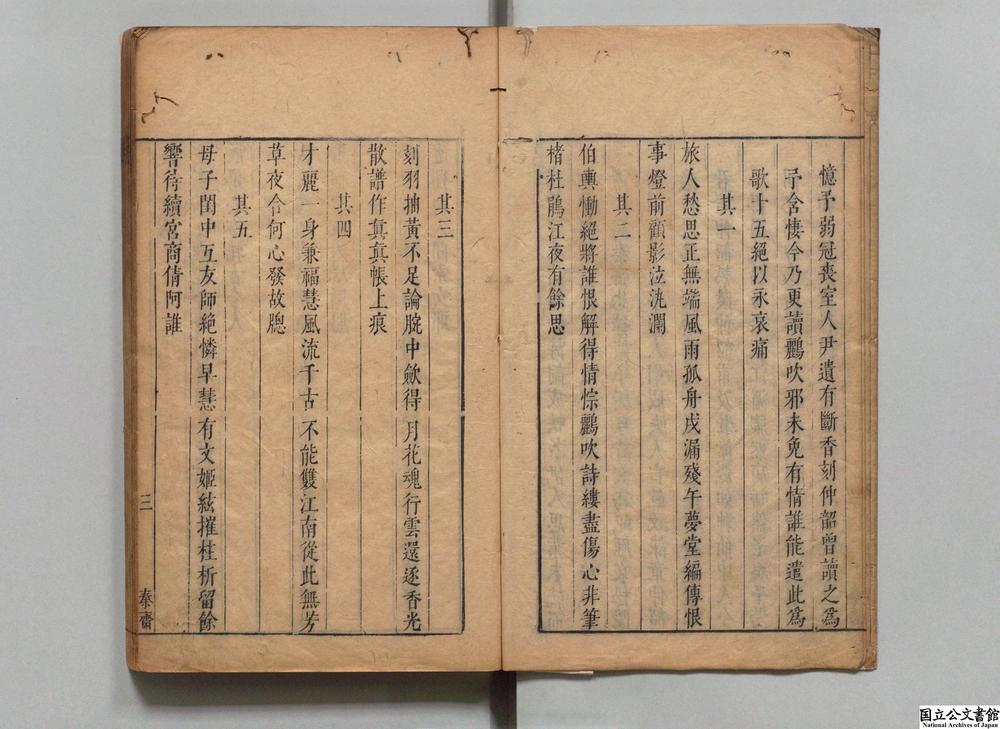 憶予弱冠喪室人尹遺有斷香刻仲韶曾讀之爲
予含悽今乃更讀鸝吹邪未免有情誰能遣此爲
歌十五絕以永哀痛
其一
旅人愁思正無端風雨孤舟戍漏殘午夢堂編傳恨
事燈前顧影泣汍瀾
其二
伯輿慟絕將誰恨解得情悰鸝吹詩縷盡傷心非筆
楮杜鵑江夜有餘思
其三
刻羽抽黃不足論腕中歛得月花魂行雲還逐香光
散譜作真真帳上痕
其四
才麗一身兼福慧風流千古不能雙江南從此無芳
草夜令何心發故牕
其五
母子閨中互友師絕憐早慧有文姬絃摧桂析留餘
響待續宮商倩阿誰
三
泰齋
国立公文書館
National Archives of Japan